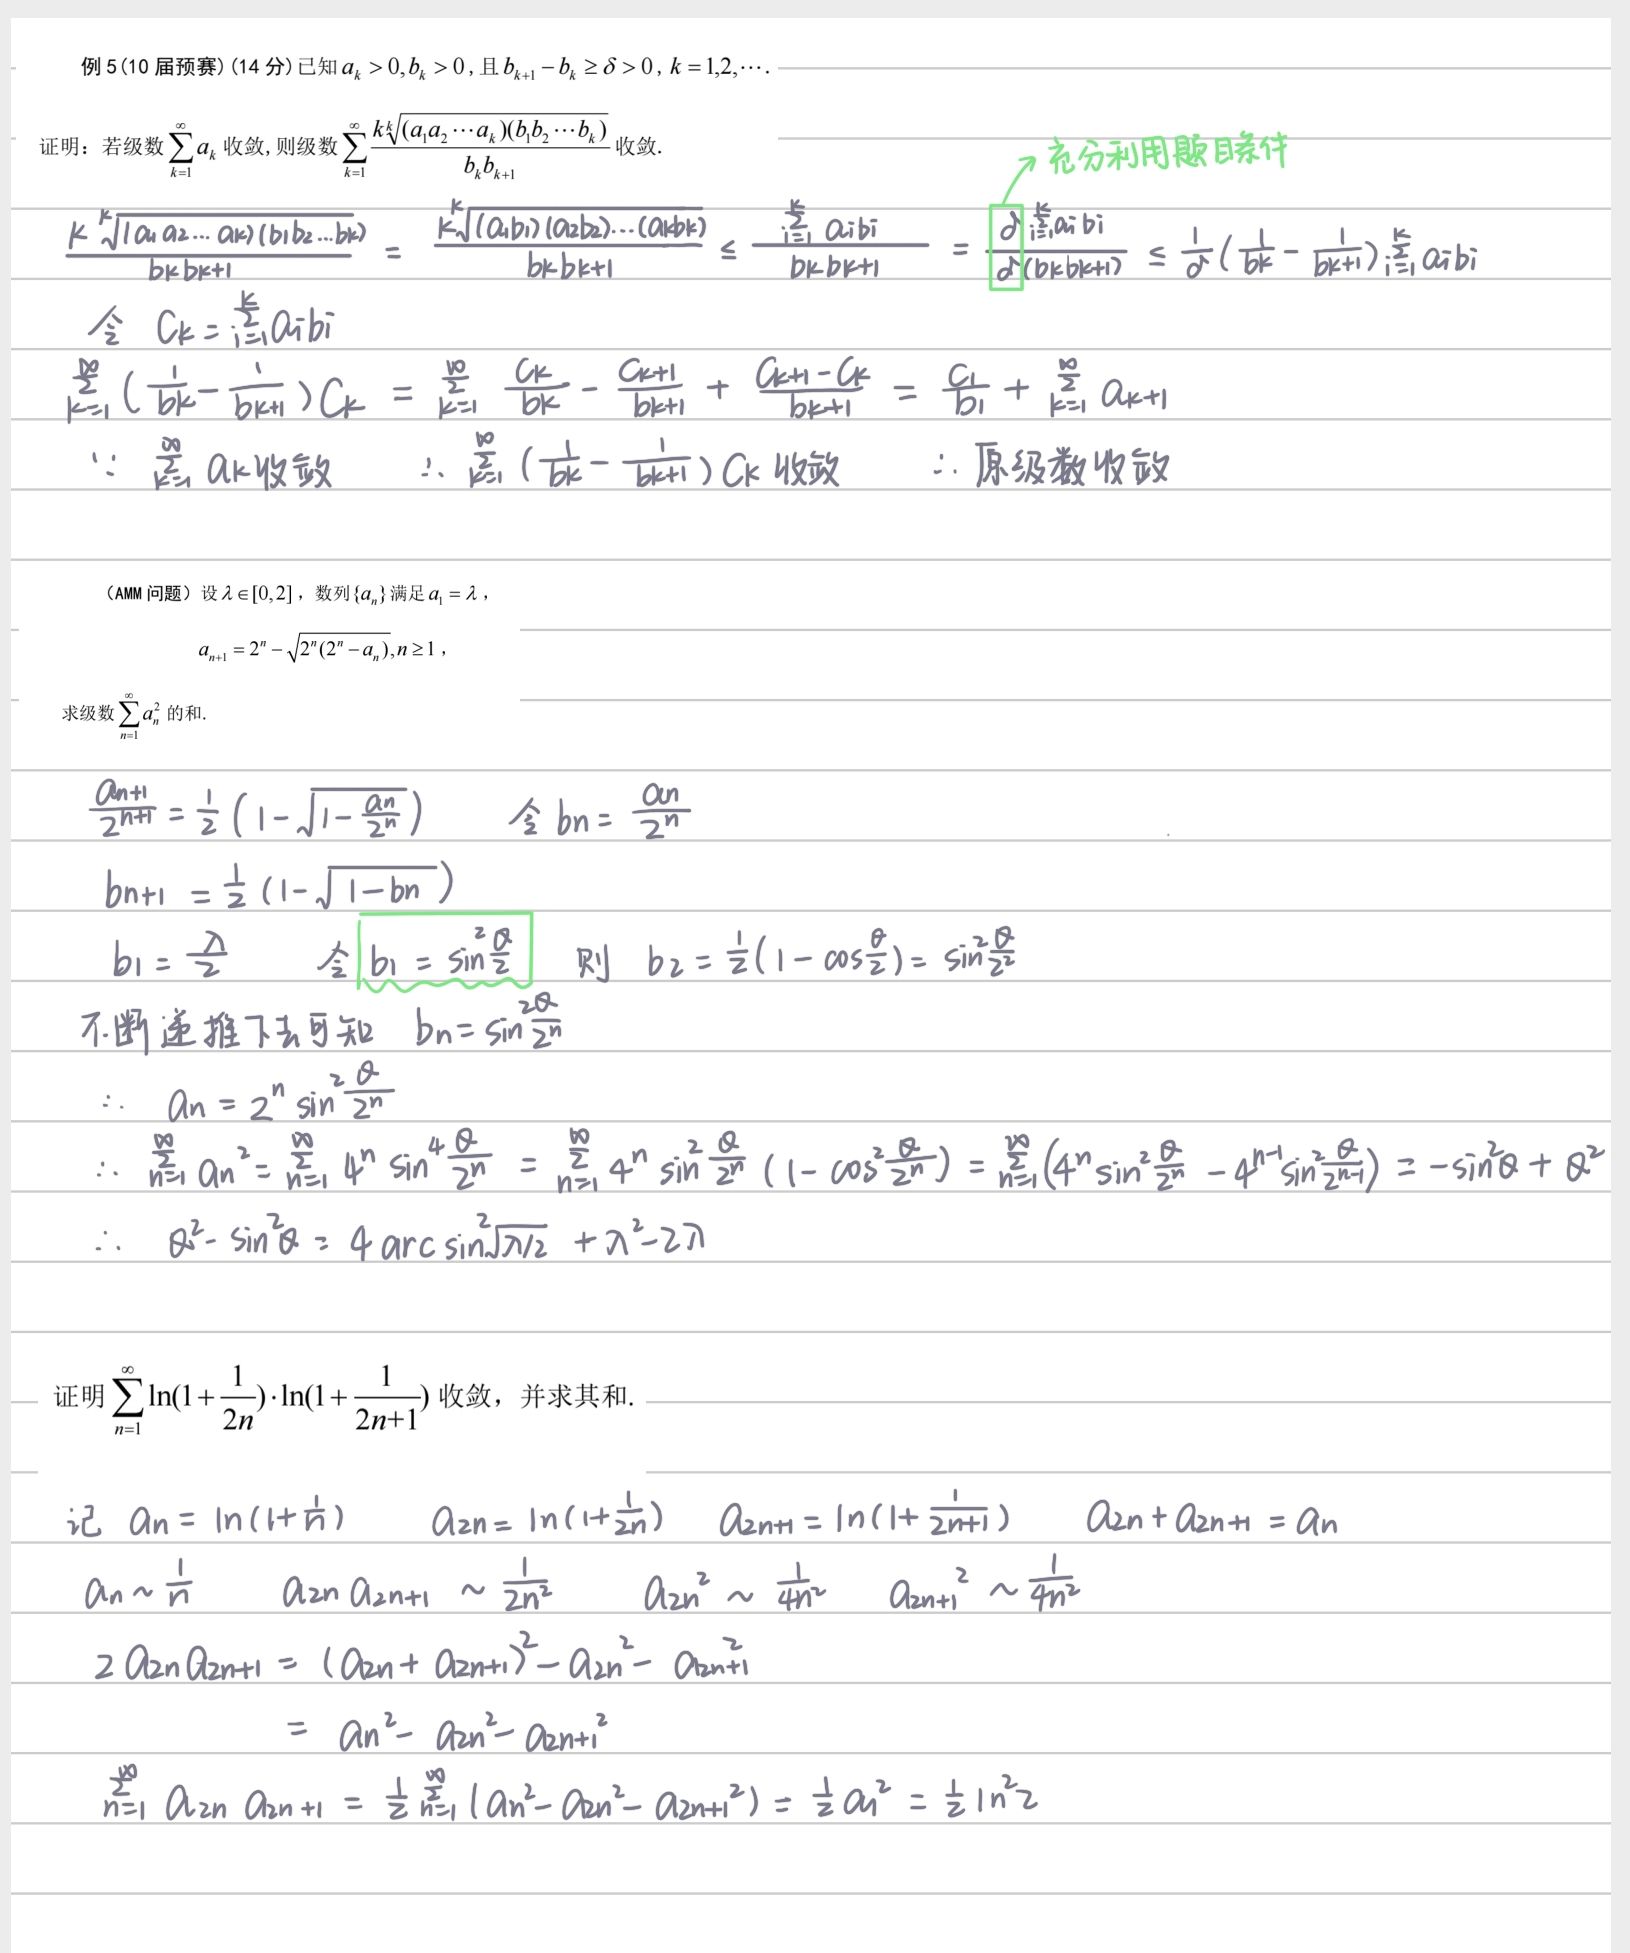 例 5(10 届预赛)(14 分)已知 a_k > 0, b_k > 0, 且 b_{k+1} − b_k ≥ δ > 0, k = 1,2,⋯.
证明：若级数 ∑_{k=1}^{∞} a_k 收敛, 则级数 ∑_{k=1}^{∞} k ᵏ√((a_1a_2⋯a_k)(b_1b_2⋯b_k)) / (b_k b_{k+1}) 收敛.
充分利用题目条件
k ᵏ√((a_1 a_2 ... a_k)(b_1 b_2 ... b_k)) / (b_k b_{k+1}) = k ᵏ√((a_1b_1)(a_2b_2)...(a_kb_k)) / (b_k b_{k+1}) ≤ ∑_{i=1}^{k} a_i b_i / (b_k b_{k+1}) = δ ∑_{i=1}^{k} a_i b_i / (δ(b_k b_{k+1})) ≤ 1/δ (1/b_k − 1/b_{k+1}) ∑_{i=1}^{k} a_i b_i
令 C_k = ∑_{i=1}^{k} a_i b_i
∑_{k=1}^{∞} (1/b_k − 1/b_{k+1}) C_k = ∑_{k=1}^{∞} C_k/b_k − C_{k+1}/b_{k+1} + (C_{k+1} − C_k)/b_{k+1} = C_1/b_1 + ∑_{k=1}^{∞} a_{k+1}
∵ ∑_{k=1}^{∞} a_k 收敛 ∴ ∑_{k=1}^{∞} (1/b_k − 1/b_{k+1}) C_k 收敛 ∴ 原级数收敛
（AMM 问题）设 λ ∈ [0,2]，数列 {a_n} 满足 a_1 = λ，
a_{n+1} = 2^n − √(2^n(2^n − a_n)), n ≥ 1，
求级数 ∑_{n=1}^{∞} a_n^2 的和.
a_{n+1}/2^{n+1} = 1/2 (1 − √(1 − a_n/2^n)) 令 b_n = a_n/2^n
b_{n+1} = 1/2 (1 − √(1 − b_n))
b_1 = λ/2 令 b_1 = sin^2 θ/2 则 b_2 = 1/2 (1 − cos θ/2) = sin^2 θ/2^2
不断递推下去可知 b_n = sin^2 θ/2^n
∴ a_n = 2^n sin^2 θ/2^n
∴ ∑_{n=1}^{∞} a_n^2 = ∑_{n=1}^{∞} 4^n sin^4 θ/2^n = ∑_{n=1}^{∞} 4^n sin^2 θ/2^n (1 − cos^2 θ/2^n) = ∑_{n=1}^{∞} (4^n sin^2 θ/2^n − 4^{n-1} sin^2 θ/2^{n-1}) = −sin^2θ + θ^2
∴ θ^2 − sin^2θ = 4 arcsin^2 √(λ/2) + λ^2 − 2λ
证明 ∑_{n=1}^{∞} ln(1 + 1/2n) · ln(1 + 1/(2n+1)) 收敛，并求其和.
记 a_n = ln(1 + 1/n) a_{2n} = ln(1 + 1/2n) a_{2n+1} = ln(1 + 1/(2n+1)) a_{2n} + a_{2n+1} = a_n
a_n ~ 1/n a_{2n} a_{2n+1} ~ 1/2n^2 a_{2n}^2 ~ 1/4n^2 a_{2n+1}^2 ~ 1/4n^2
2 a_{2n} a_{2n+1} = (a_{2n} + a_{2n+1})^2 − a_{2n}^2 − a_{2n+1}^2
= a_n^2 − a_{2n}^2 − a_{2n+1}^2
∑_{n=1}^{∞} a_{2n} a_{2n+1} = 1/2 ∑_{n=1}^{∞} (a_n^2 − a_{2n}^2 − a_{2n+1}^2) = 1/2 a_1^2 = 1/2 ln^2 2